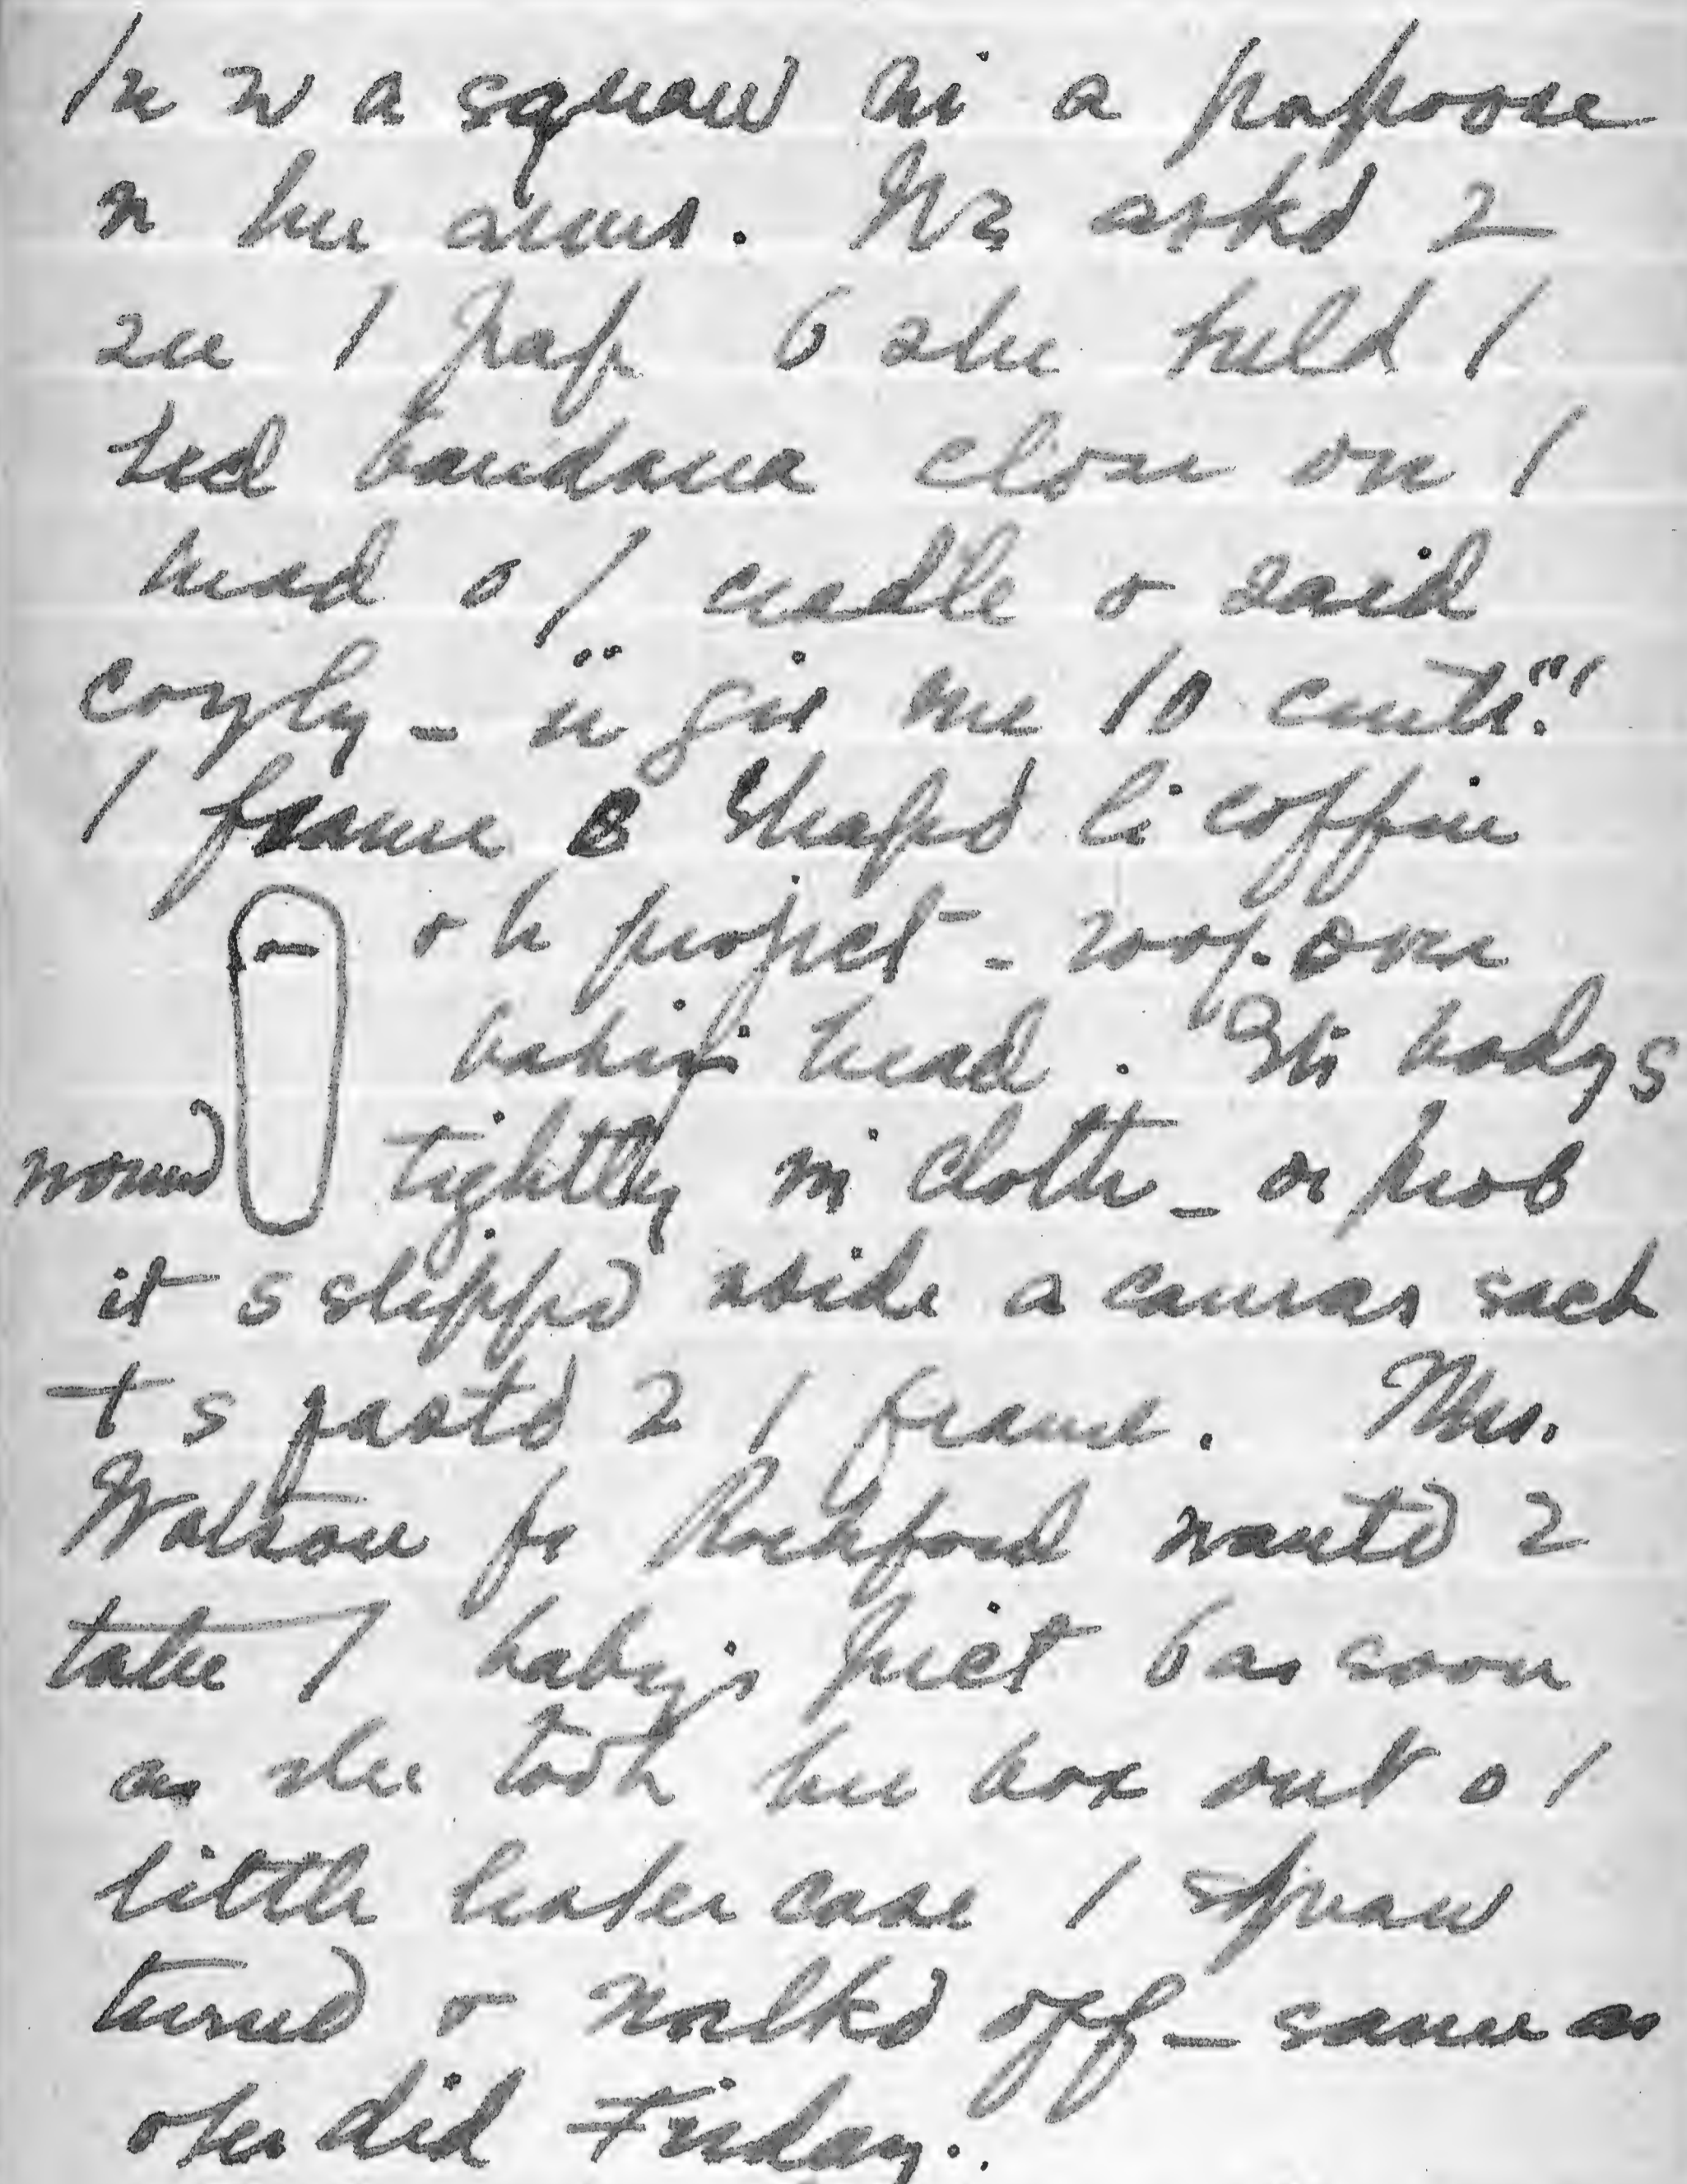 /n w a squaw wi a papoose
n her arms. We askd 2
see / pap 6 she held /
red bandana close on /
head o / cradle & said
coyly - "u giv me 10 cents."
/ frame B shapd li coffin
& h project - roof over
baby's head. Its body s
wound tightly in cloth - or prob
it s slippd nside a canvas sack
t s fastd 2 / frame. Mrs.
Watson fr Rockford wantd 2
take / baby's pict 6 as soon
as she took her box out o /
little leather case / squaw
turnd & walkd off - same as
oher did Friday.